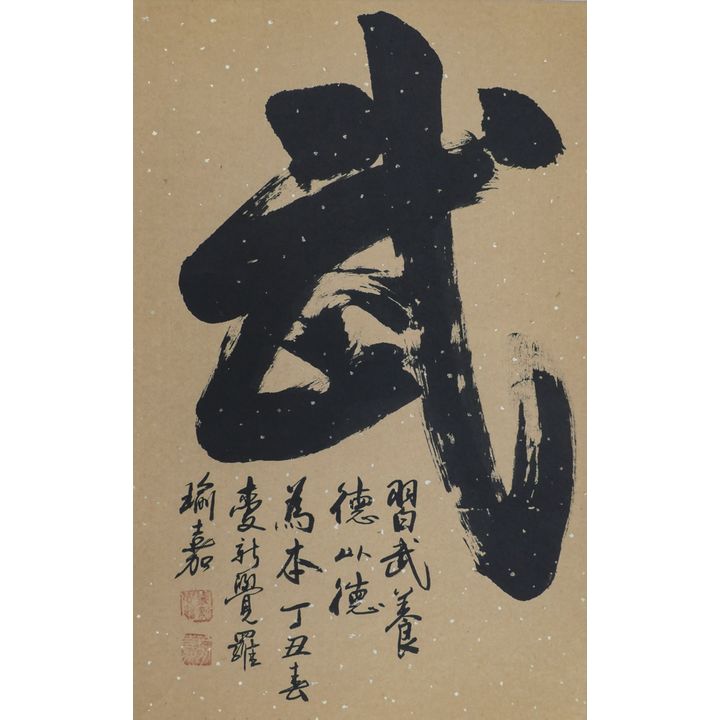 武
習武養
德以德
為本丁丑春
愛新覺羅
瑜嘉